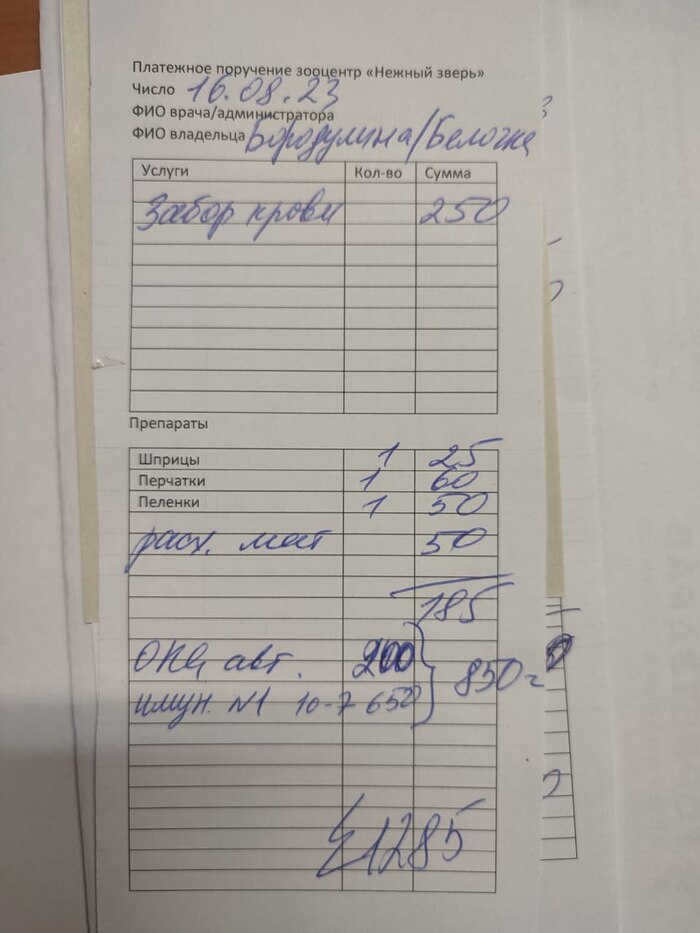 Платежное поручение зооцентр «Нежный зверь»
Число 16.08.23
ФИО врача/администратора
ФИО владельца Бородулина/Белочка
Услуги Кол-во Сумма
Забор крови 250
Препараты
Шприцы 1 25
Перчатки 1 60
Пеленки 1 50
расх. мат 50
185
ОКА авт. 200
850=
имун. №1 10-7 650
1285